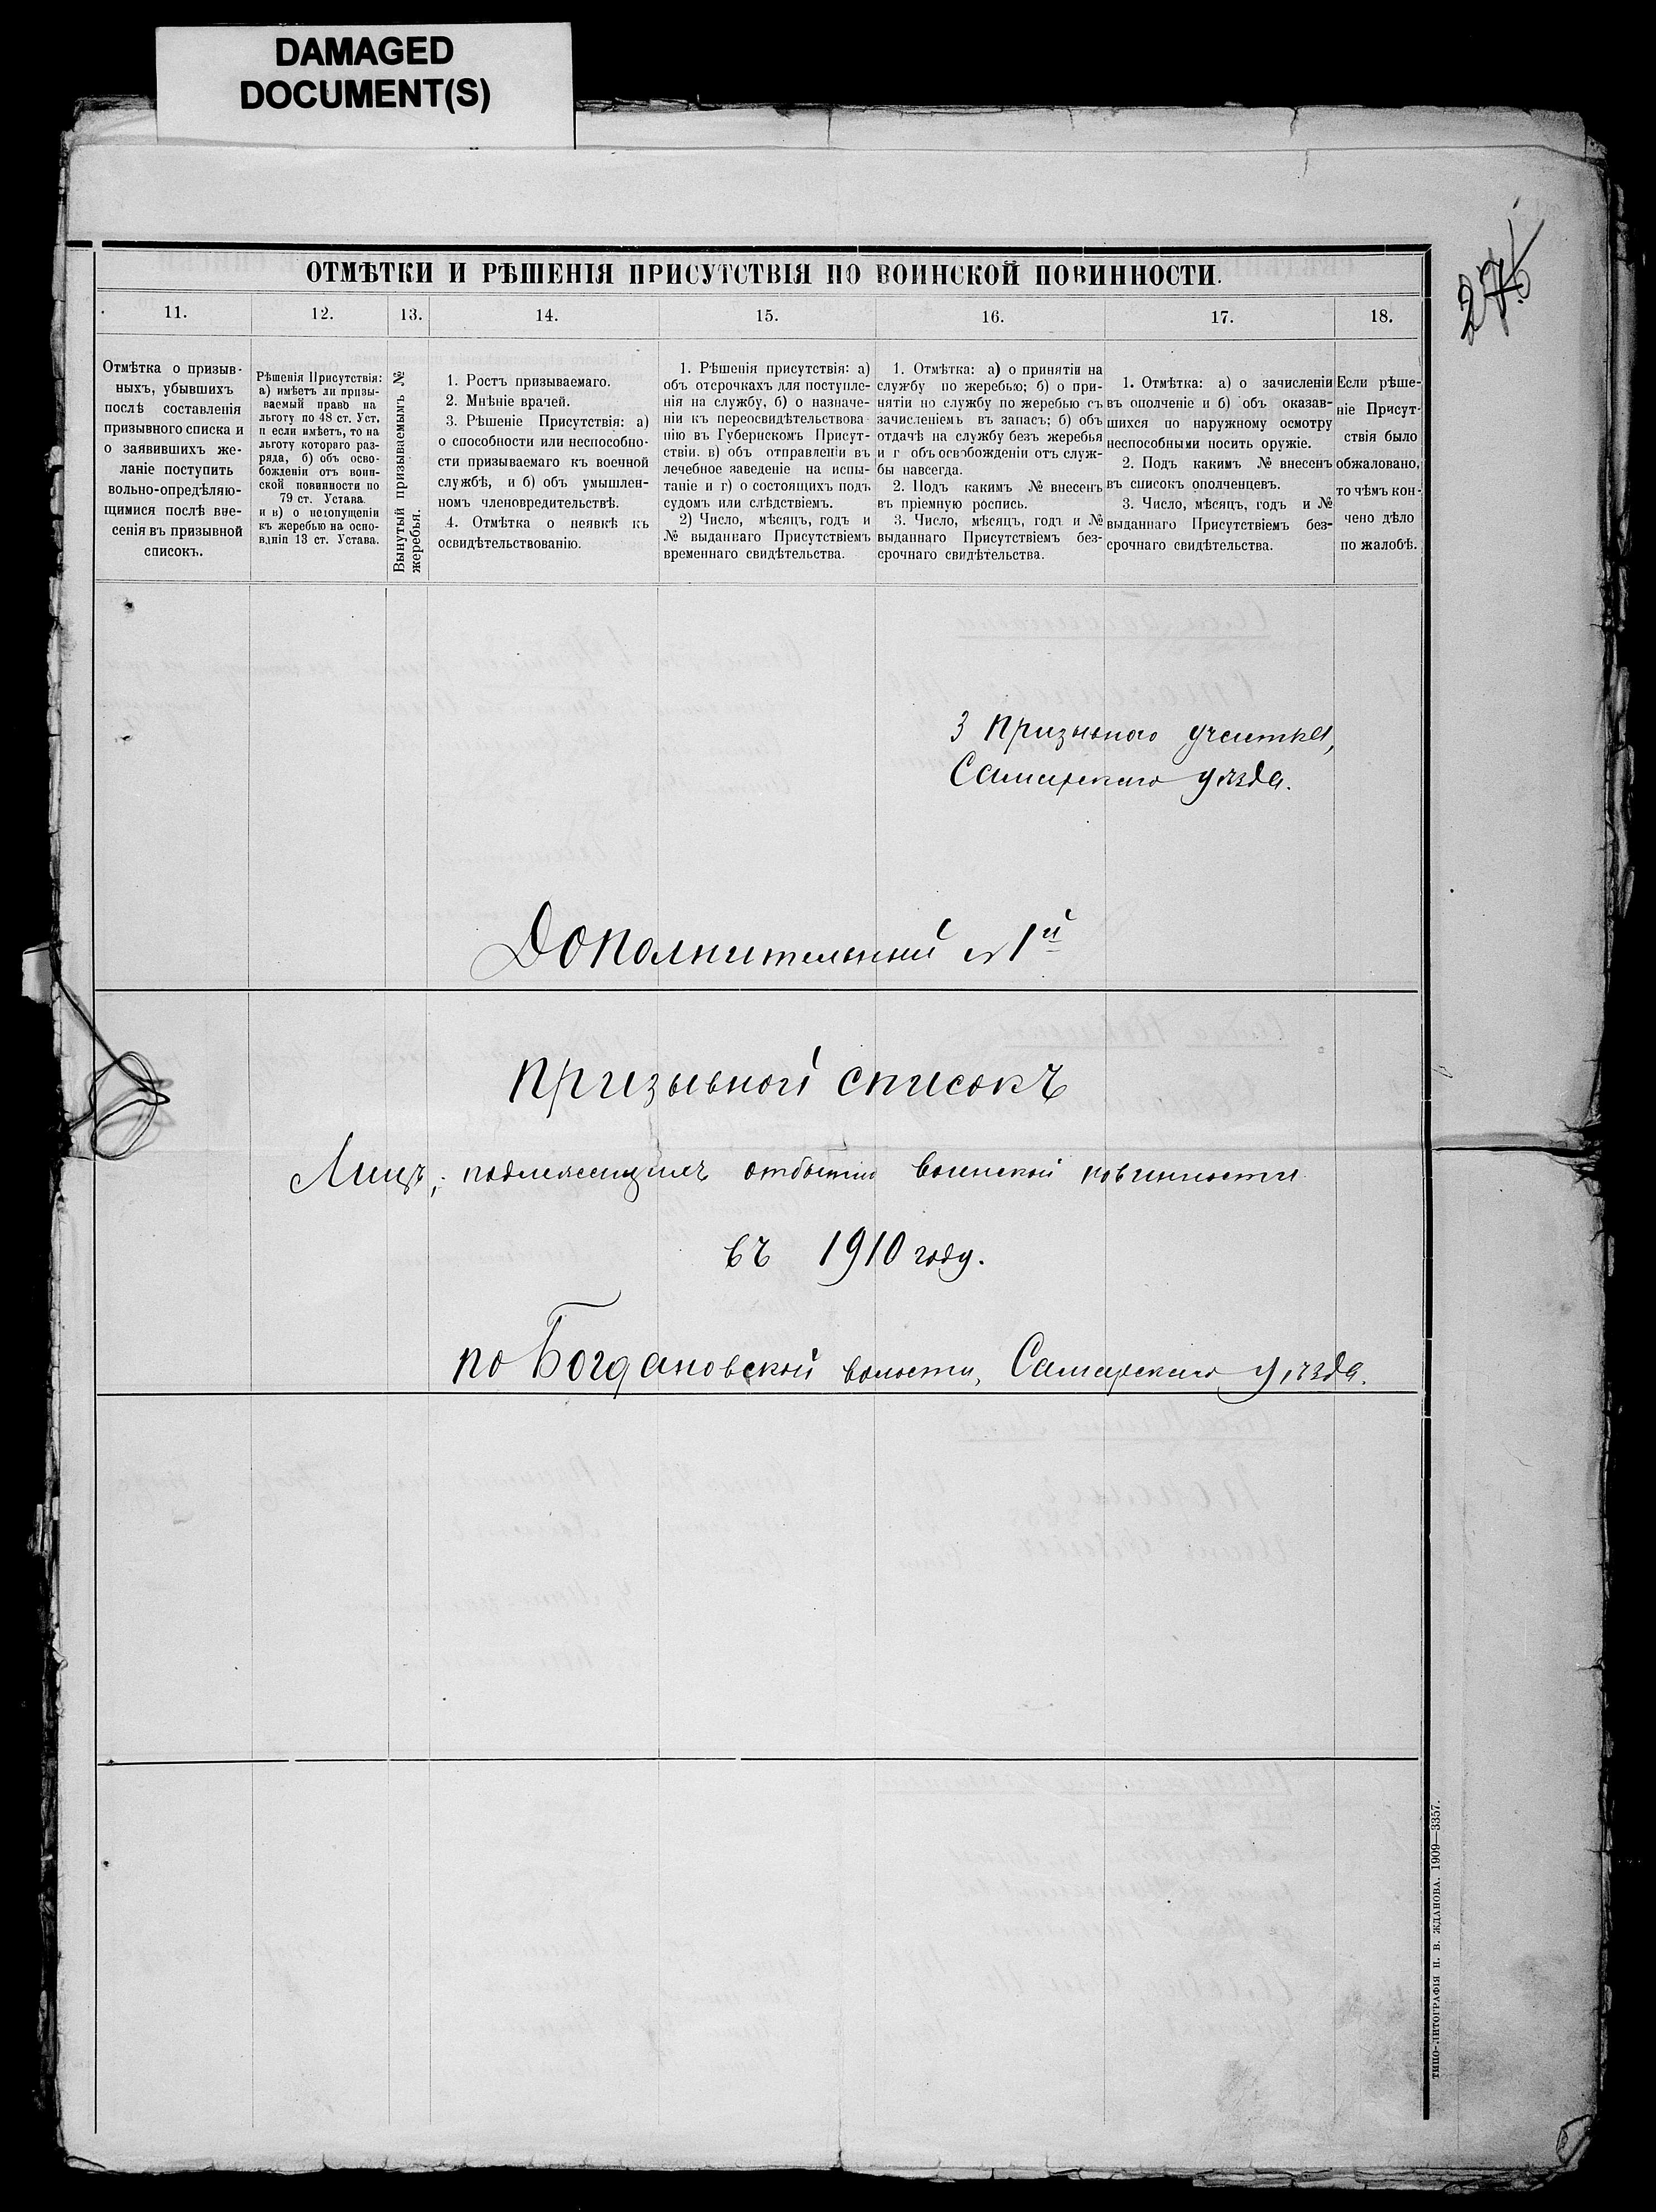 DAMAGED
DOCUMENT(S)
ОТМѢТКИ И РѢШЕНІЯ ПРИСУТСТВІЯ ПО ВОИНСКОЙ ПОВИННОСТИ.
11.
12.
13.
14.
15.
16.
17.
18.
Отмѣтка о призыв-
ныхъ, убывшихъ
послѣ составленія
призывного списка и
о заявившихъ же-
ланіе поступить
вольно-опредѣляю-
щимися послѣ вне-
сенія въ призывной
списокъ.
Рѣшенія Присутствія:
а) имѣетъ ли призы-
ваемый право на
льготу по 48 ст. Уст.
и если имѣетъ, то на
льготу котораго раз-
ряда, б) объ осво-
божденіи отъ воин-
ской повинности по
79 ст. Устава
и в) о недопущеніи
къ жеребью на осно-
ваніи 13 ст. Устава.
Вынутый призываемымъ №
жеребья.
1. Ростъ призываемаго.
2. Мнѣніе врачей.
3. Рѣшеніе Присутствія: а)
о способности или неспособно-
сти призываемаго къ военной
службѣ, и б) объ умышлен-
номъ членовредительствѣ.
4. Отмѣтка о неявкѣ къ
освидѣтельствованію.
1. Рѣшенія присутствія: а)
объ отсрочкахъ для поступле-
нія на службу, б) о назначе-
ніи къ переосвидѣтельствова
нію въ Губернскомъ Присут-
ствіи. в) объ отправленіи въ
лечебное заведеніе на испы-
таніе и г) о состоящихъ подъ
судомъ или слѣдствіемъ.
2) Число, мѣсяцъ, годъ и
№ выданнаго Присутствіемъ
временнаго свидѣтельства.
1. Отмѣтка: а) о принятіи на
службу по жеребью; б) о при-
нятіи по службу по жеребью съ
зачисленіемъ въ запасъ; б) объ
отдачѣ на службу безъ жеребья
и г объ освобожденіи отъ служ-
бы навсегда.
2. Подъ какимъ № внесенъ
въ пріемную роспись.
3. Число, мѣсяцъ, годъ и №
выданнаго Присутствіемъ без-
срочнаго свидѣтельства.
1. Отмѣтка: а) о зачисленіи
въ ополченіе и б) объ оказав-
шихся по наружному осмотру
неспособными носить оружіе.
2. Подъ какимъ № внесенъ
въ списокъ ополченцевъ.
3. Число, мѣсяцъ, годъ и №
выданнаго Присутствіемъ без-
срочнаго свидѣтельства.
Если рѣше-
ніе Присут-
ствія было
обжаловано,
то чѣмъ кон-
чено дѣло
по жалобѣ.
3 Призывного участка,
Самарскаго уѣзда.
Дополнительный № 1й
Призывной списокъ
Лицъ, подлежащихъ отбытію воинской повинности
въ 1910 году.
по Богдановской волости, Самарскаго уѣзда.
ТИПО-ЛИТОГРАФІЯ Н. В. ЖДАНОВА. 1909—3357.